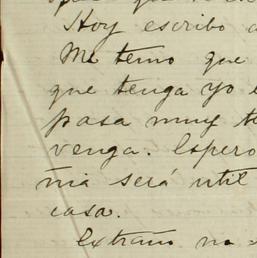 Hoy escribo a
Me temo que
que tenga yo
pasa muy
venga. Espero
ñia será util
casa.
Extraño no